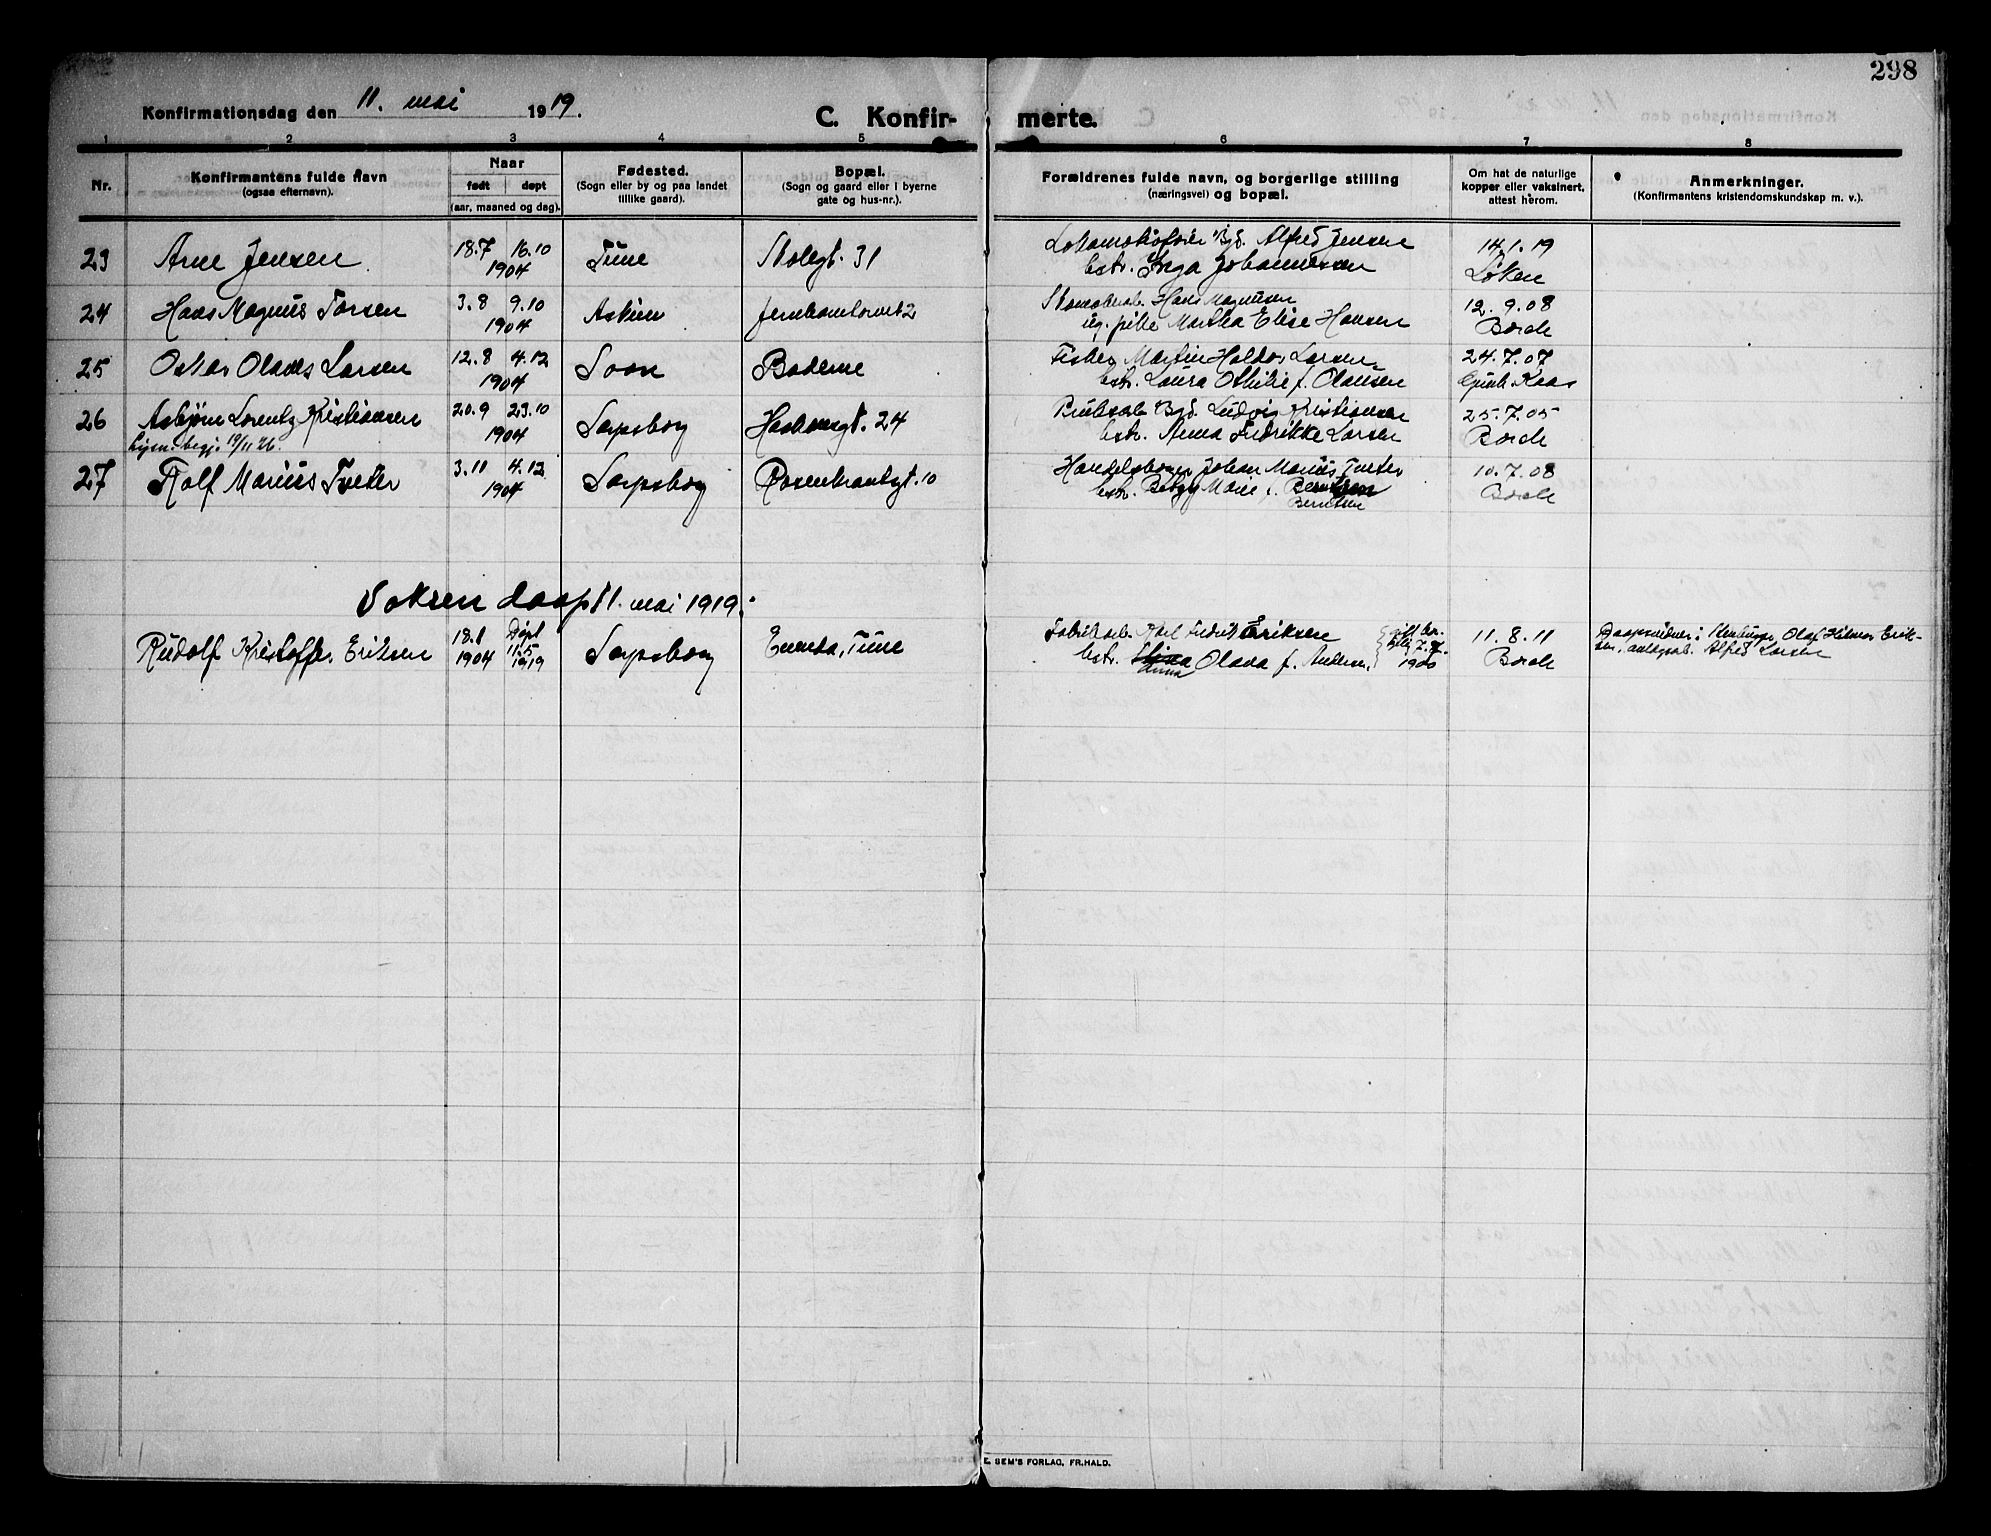 298
Konfirmationsdag den 11. mai 1919.
C. Konfirmerte.
1 2 3 4 5 6 7 8
Nr.
Konfirmantens fulde navn
(ogsaa efternavn).
Naar
født døpt
(aar, maaned og dag).
Fødested.
(Sogn eller by og paa landet
tillike gaard).
Bopæl.
(Sogn og gaard eller i byerne
gate og hus-nr.).
Forældrenes fulde navn, og borgerlige stilling
(næringsvei) og bopæl.
Om hat de naturlige
kopper eller vaksinert,
attest herom.
Anmerkninger.
(Konfirmantens kristendomskundskap m. v.).
23 Arne Jensen 18.7 16.10 Tune Skolegt. 31 Alfred Jensen 14/1. 19
1904 hstr. Inga Johannessen Løken
24 Hans Magnus Torsen 3.8 9.10 Askim Jernbanetorvet 2 Hans Magnussen 12.9.08
1904 ug. pike Martha Elise Hansen Borch
25 Oskar Olaves Larsen 12.8 4.12 Soon Baderne Fisker Martin Haldor Larsen 24.7.07
1904 hstr. Laura Othilie f. Olausen Kaas
26 Asbjørn Lorentz Kristiansen 20.9 23.10 Sarpsborg 24 Ludvig Kristiansen 25.7.05
1904 hstr. Anna Fredrikke Larsen Borch
lysn. begj. 19/11 26.
27 Rolf Marius Tveter 3.11 4.12 Sarpsborg Rosenkrantzgt. 10 Johan Marius Tveter 10.7.08
1904 hstr. Marie f. Berntsen Borch
Berntsen
Voksen daap 11. mai 1919.
Rudolf Kristoffer Eriksen 18.1 Døpt Sarpsborg Enersta, Tune Fabrikarb. Karl Fredrik Eriksen 11.8.11 Daapsvidner: Olaf Hilmar Erik-
1904 11.5 1919 hstr. Anna Olava f. Andersen 1900 Borch sen, Alfred Larsen
E. SEM'S FORLAG, FR.HALD.